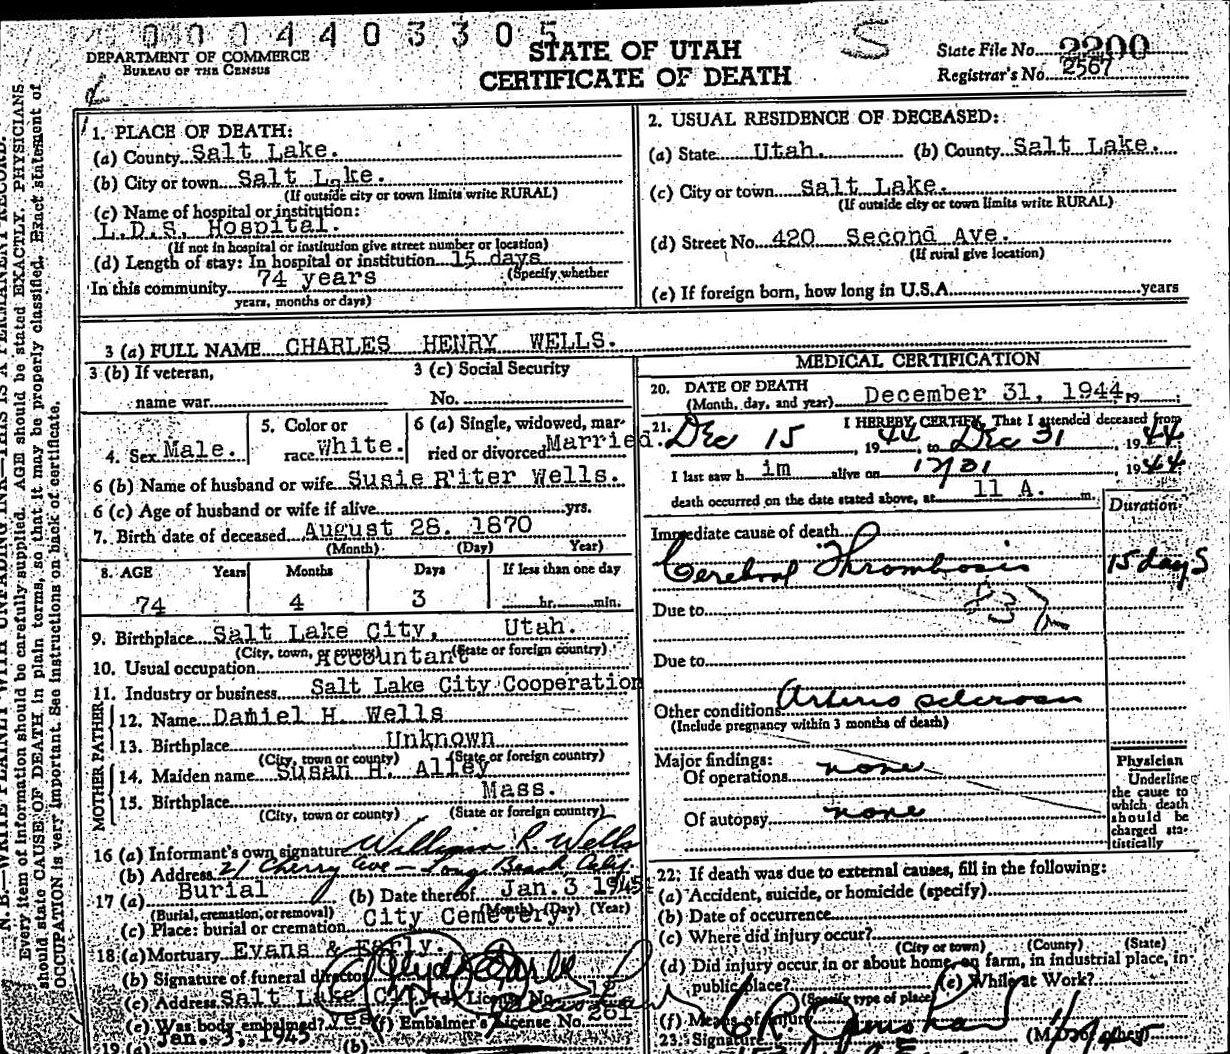 0004403305
DEPARTMENT OF COMMERCE
BUREAU OF THE CENSUS
STATE OF UTAH
CERTIFICATE OF DEATH
S
State File No. 2200
Registrar's No. 2567
N. B.—WRITE PLAINLY WITH UNFADING INK—THIS IS A PERMANENT RECORD.
Every item of information should be carefully supplied. AGE should be stated EXACTLY. PHYSICIANS
should state CAUSE OF DEATH in plain terms, so that it may be properly classified. Exact statement of
OCCUPATION is very important. See instructions on back of certificate.
1. PLACE OF DEATH:
(a) County Salt Lake.
(b) City or town Salt Lake.
(If outside city or town limits write RURAL)
(c) Name of hospital or institution:
L.D.S. Hospital.
(If not in hospital or institution give street number or location)
(d) Length of stay: In hospital or institution 15 days
(Specify whether
In this community 74 years
years, months or days)
2. USUAL RESIDENCE OF DECEASED:
(a) State Utah. (b) County Salt Lake.
(c) City or town Salt Lake.
(If outside city or town limits write RURAL)
(d) Street No. 420 Second Ave.
(If rural give location)
(e) If foreign born, how long in U.S.A. years
3 (a) FULL NAME CHARLES HENRY WELLS.
3 (b) If veteran,
name war
3 (c) Social Security
No.
4. Sex Male.
5. Color or
race White.
6 (a) Single, widowed, mar-
ried or divorced Married.
6 (b) Name of husband or wife Susie R'iter Wells.
6 (c) Age of husband or wife if alive yrs.
7. Birth date of deceased August 28. 1870
(Month) (Day) Year)
8. AGE Years Months Days If less than one day
74 4 3 hr. min.
9. Birthplace Salt Lake City, Utah.
(City, town, or county) (State or foreign country)
10. Usual occupation Accountant
11. Industry or business Salt Lake City Cooperation
FATHER
12. Name Daniel H. Wells
13. Birthplace Unknown
(City, town or county) (State or foreign country)
MOTHER
14. Maiden name Susan H. Alley
15. Birthplace Mass.
(City, town or county) (State or foreign country)
16 (a) Informant's own signature William R. Wells
(b) Address 21 Cherry Ave - Long Beach Calif.
17 (a) Burial (b) Date thereof Jan. 3 1945
(Burial, cremation, or removal) (Month) (Day) (Year)
(c) Place: burial or cremation City Cemetery
18 (a) Mortuary Evans & Early.
(b) Signature of funeral director
(c) Address Salt Lake City (d) License No.
(e) Was body embalmed? Yes (f) Embalmer's License No. 261
19 (a) Jan. 3, 1945 (b)
MEDICAL CERTIFICATION
20. DATE OF DEATH
(Month, day, and year) December 31, 1944 19 ;
21. I HEREBY CERTIFY, That I attended deceased from
Dec 15, 19 44 to Dec 31 19 44
I last saw h im alive on 12/31 19 44
death occurred on the date stated above, at 11 A. m.
Duration
Immediate cause of death
Cerebral Thrombosis 15 days
Due to
Due to
Other conditions Arterio sclerosis
(Include pregnancy within 3 months of death)
Major findings:
Of operations none
Of autopsy none
Physician
Underline
the cause to
which death
should be
charged sta-
tistically
22. If death was due to external causes, fill in the following:
(a) Accident, suicide, or homicide (specify)
(b) Date of occurrence
(c) Where did injury occur?
(City or town) (County) (State)
(d) Did injury occur in or about home, on farm, in industrial place, in
public place? (e) While at Work?
(Specify type of place)
(f) Means of injury
23. Signature